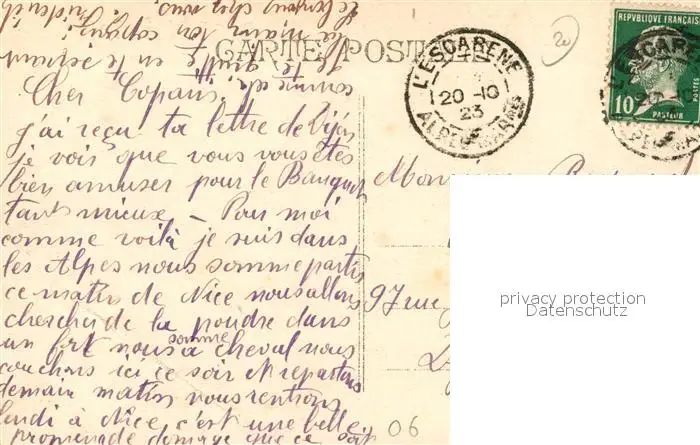 CARTE POSTALE
Cher Copain,
j'ai reçu ta lettre de Dijon
je vois que vous vous êtes
bien amuser pour le Banquet
tant mieux – Pour moi
comme voilà je suis dans
les Alpes nous somme partis
ce matin de Nice nous allons
chercher de la poudre dans
un fort nous somme à cheval nous
couchons ici ce soir et repartons
demain matin nous rentrons
lundi à Nice c'est une belle
promenade domage que ce soit
L'ESCARENE
20 -10
23
ALPES-MARMES
REPUBLIQUE FRANÇAISE
10
POSTES
PASTEUR
L'ESCARENE
20 -10
20
Monsieur
97 rue
06
privacy protection
Datenschutz